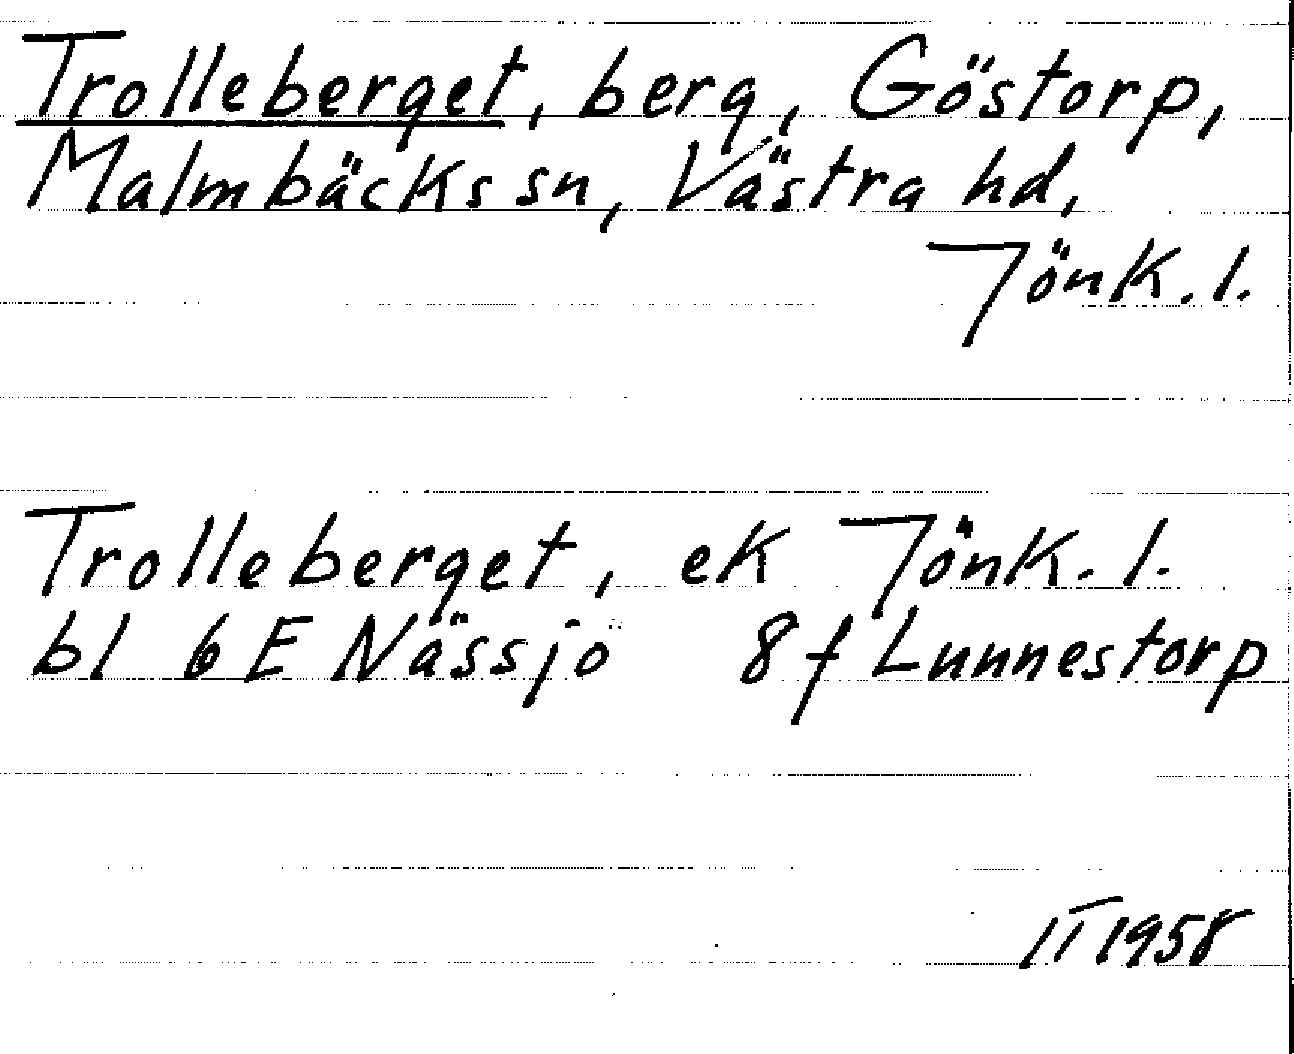 Trolleberget, berg, Göstorp,
Malmbäcks sn, Västra hd,
Jönk. l.
Trolleberget, ek Jönk. l.
bl 6E Nässjö 8f Lunnestorp
IT 1958